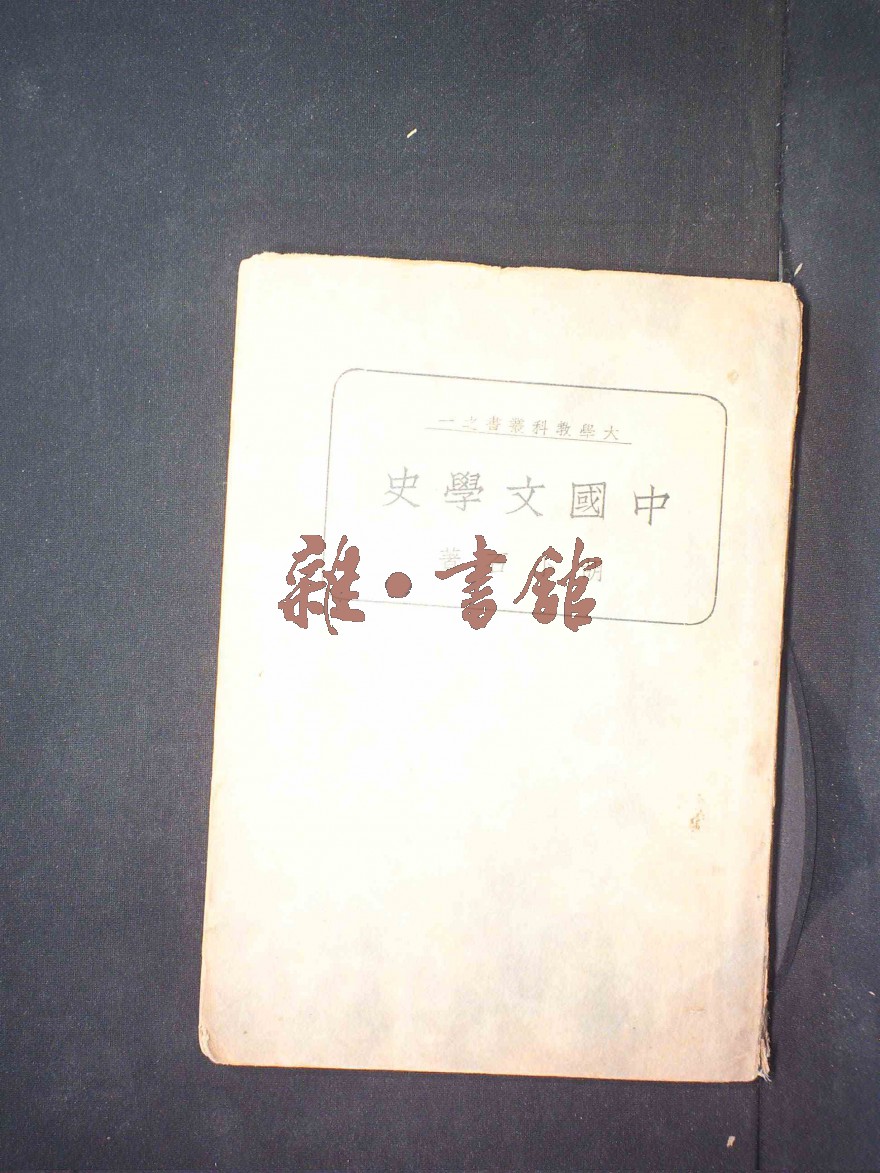 大學教科叢書之一
中國文學史
著
雜·書館